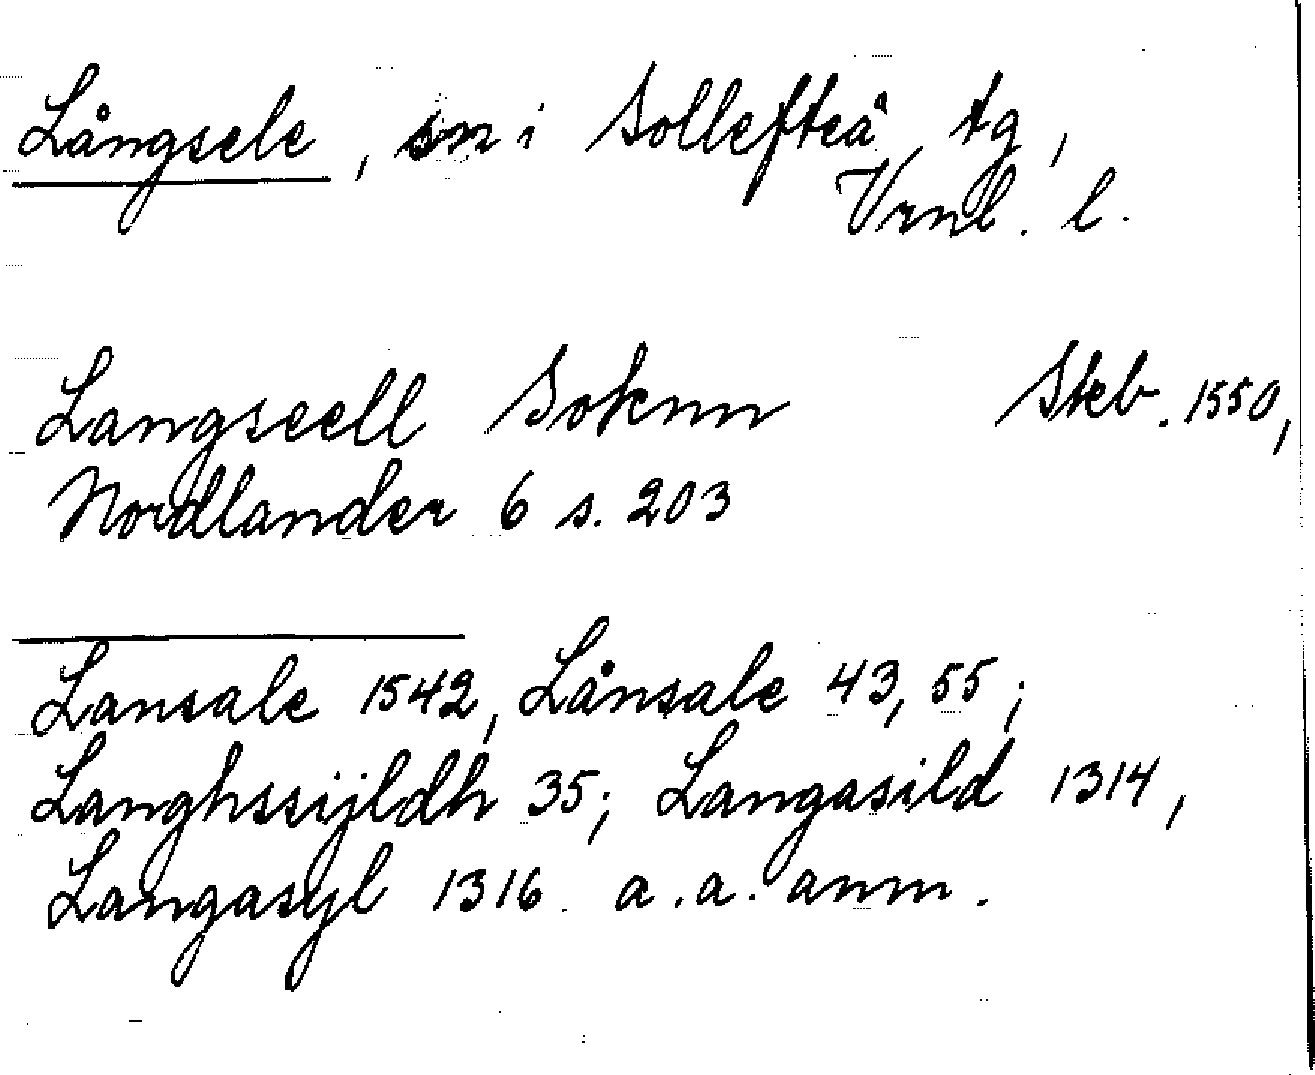 Långsele, sn i Sollefteå tg,
Vrnl. l.
Langseell Soknn Skb. 1550,
Nordlander 6 s. 203
Lansale 1542, Lånsale 43, 55;
Langhssijldh 35; Langasild 1314,
Langasyl 1316. a.a. anm.